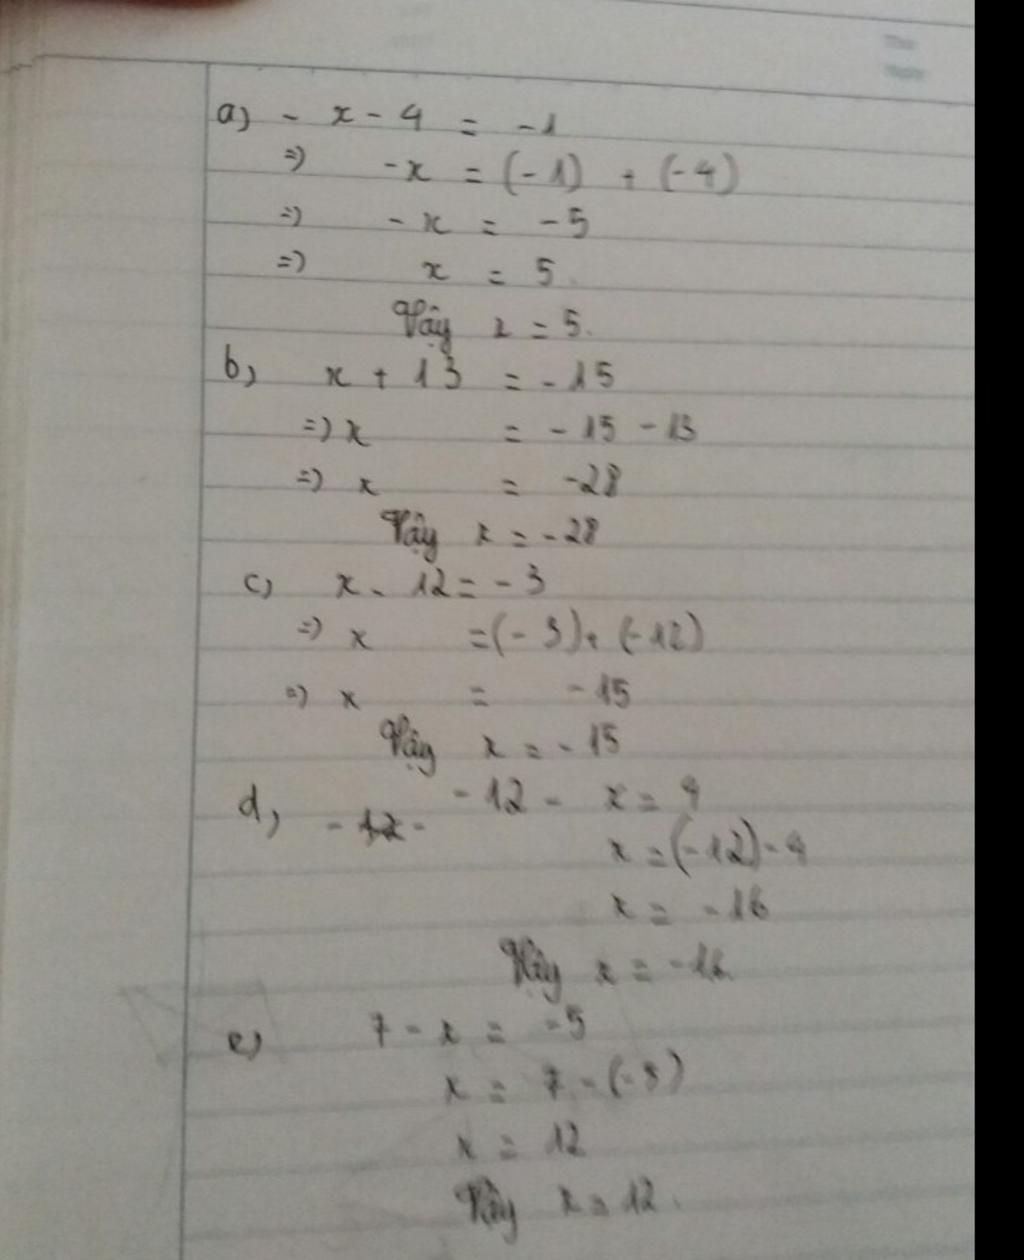 a) - x - 4 = -1
=) -x = (-1) + (-4)
=) -x = -5
=) x = 5.
Vậy x = 5.
b) x + 13 = -15
=) x = -15 - 13
=) x = -28
Vậy x = -28
c) x - 12 = -3
=) x = (-3) + (-12)
=) x = -15
Vậy x = -15
d) -12 - x = 4
x = (-12) - 4
x = -16
Vậy x = -16
e) 7 - x = -5
x = 7 - (-5)
x = 12
Vậy x = 12.